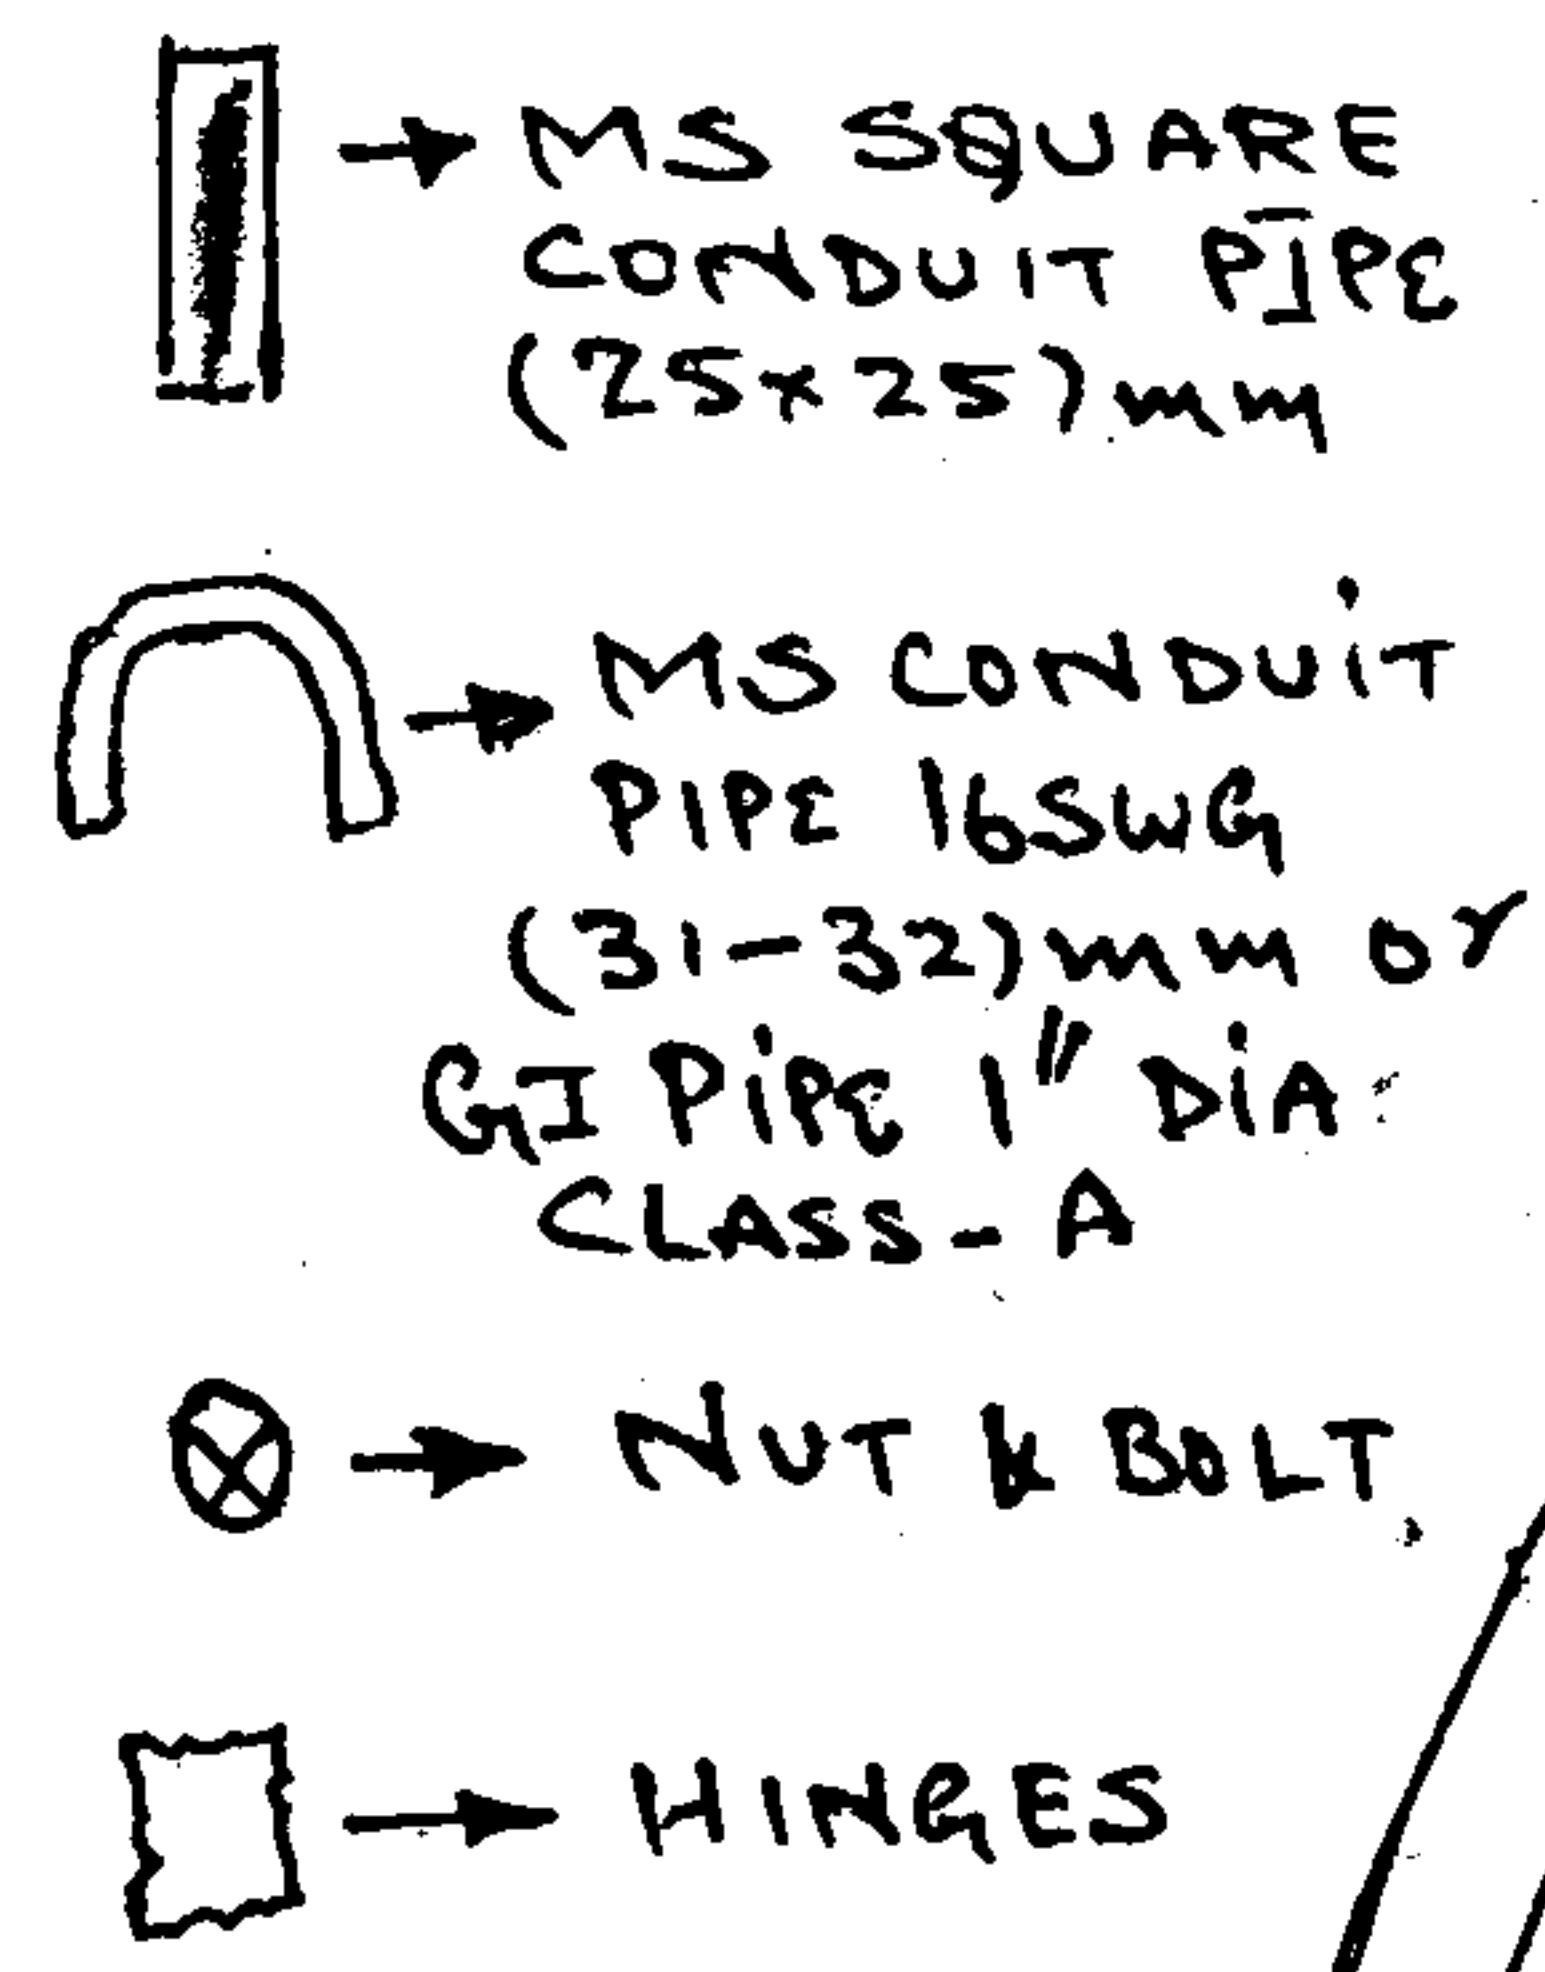 MS SQUARE
CONDUIT PIPE
(25x25)mm
MS CONDUiT
PIPE 16SWG
(31-32)mm or
GI PiPE 1" DiA
CLASS-A
NUT & BOLT
HINGES